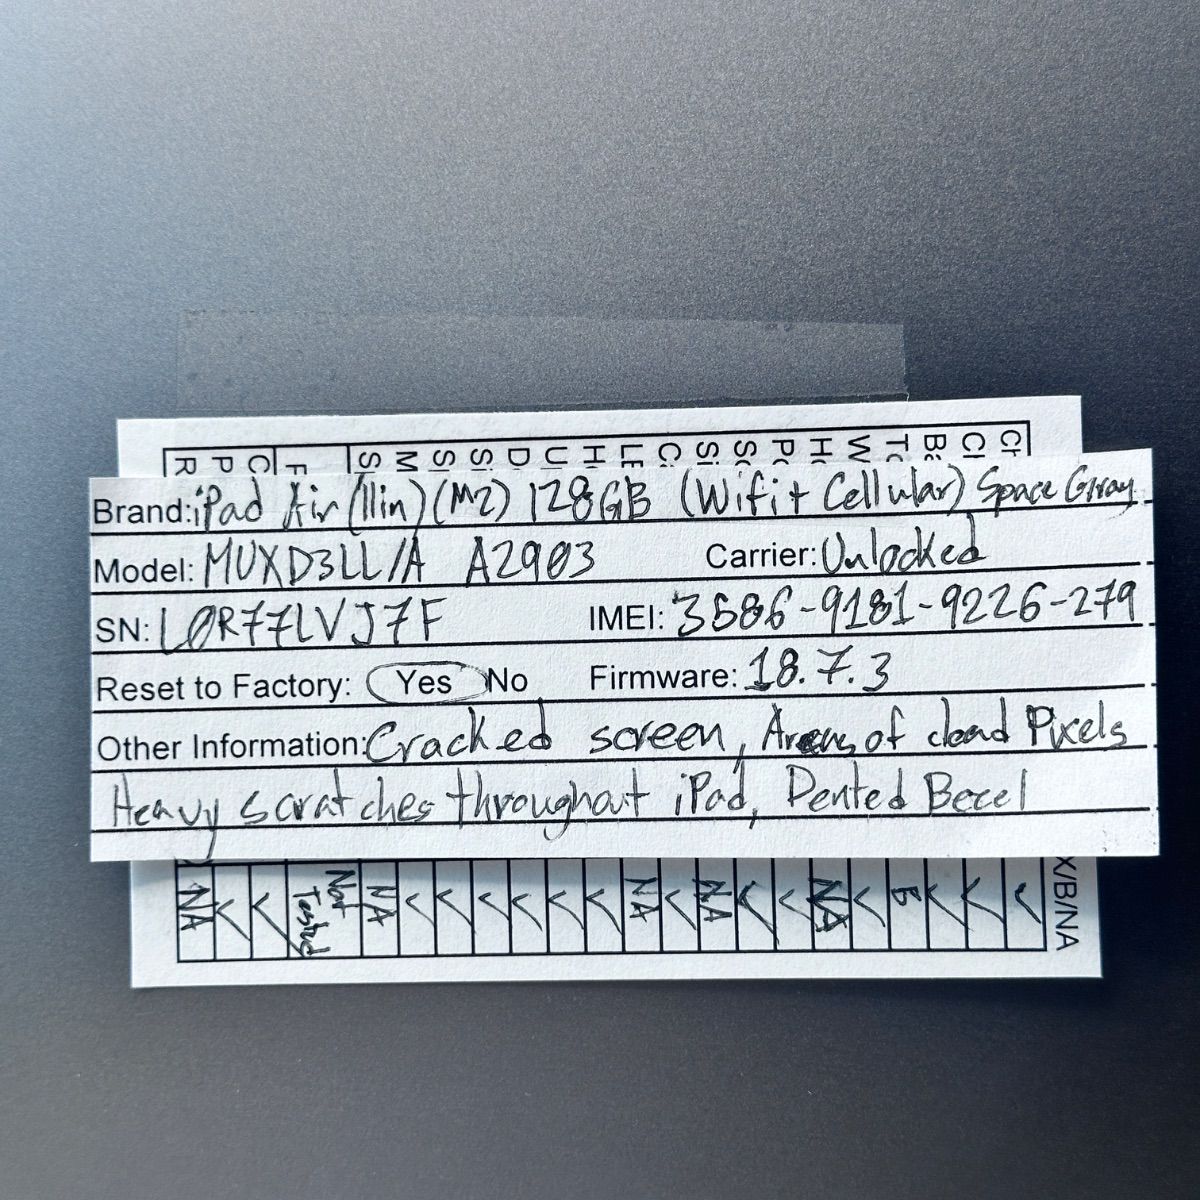 Brand: iPad Air (11in) (M2) 128GB (Wifi + Cellular) Space Gray
Model: MUXD3LL/A A2903 Carrier: Unlocked
SN: L0R77LVJ7F IMEI: 3586-9181-9226-279
Reset to Factory: Yes No Firmware: 18.7.3
Other Information: Cracked screen, Areas of dead Pixels
Heavy scratches throughout iPad, Dented Bezel
X/B/NA
✓
✓
✓
B
✓
NA
✓
✓
NA
✓
NA
✓
✓
✓
✓
✓
✓
NA
Not Tested
✓
✓
NA